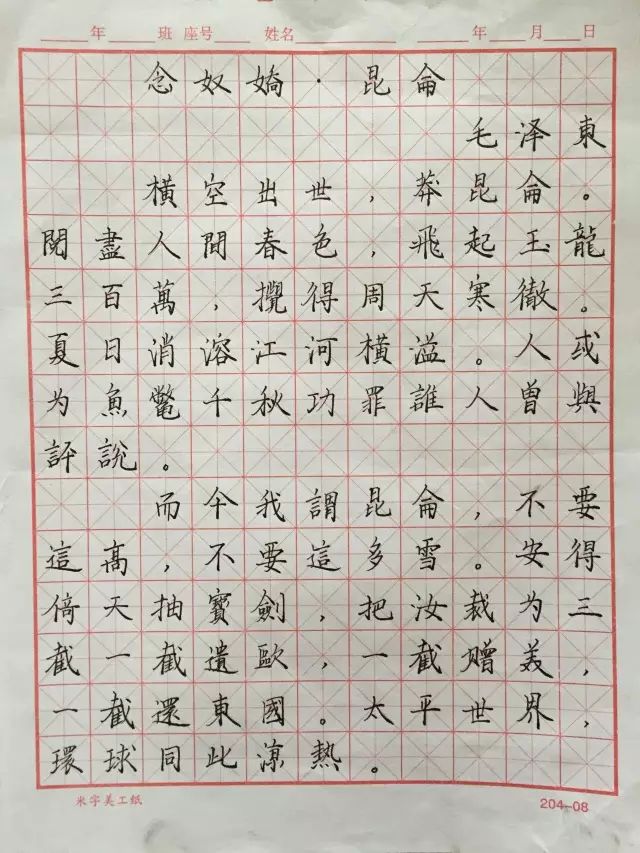 年 班 座号 姓名 年 月 日
念奴嬌·昆侖
毛泽東
橫空出世,莽昆侖。
閱盡人間春色,飛起玉龍
三百萬,攪得周天寒徹。
夏日消溶江河橫溢。人或
为魚鱉千秋功罪誰人曾與
評說。
而今我謂昆侖,不要
這高,不要這多雪。安得
倚天抽寶劍,把汝裁为三
截一截遺歐,一截赠美,
一截還東國。太平世界,
環球同此涼熱。
米字美工纸 204-08